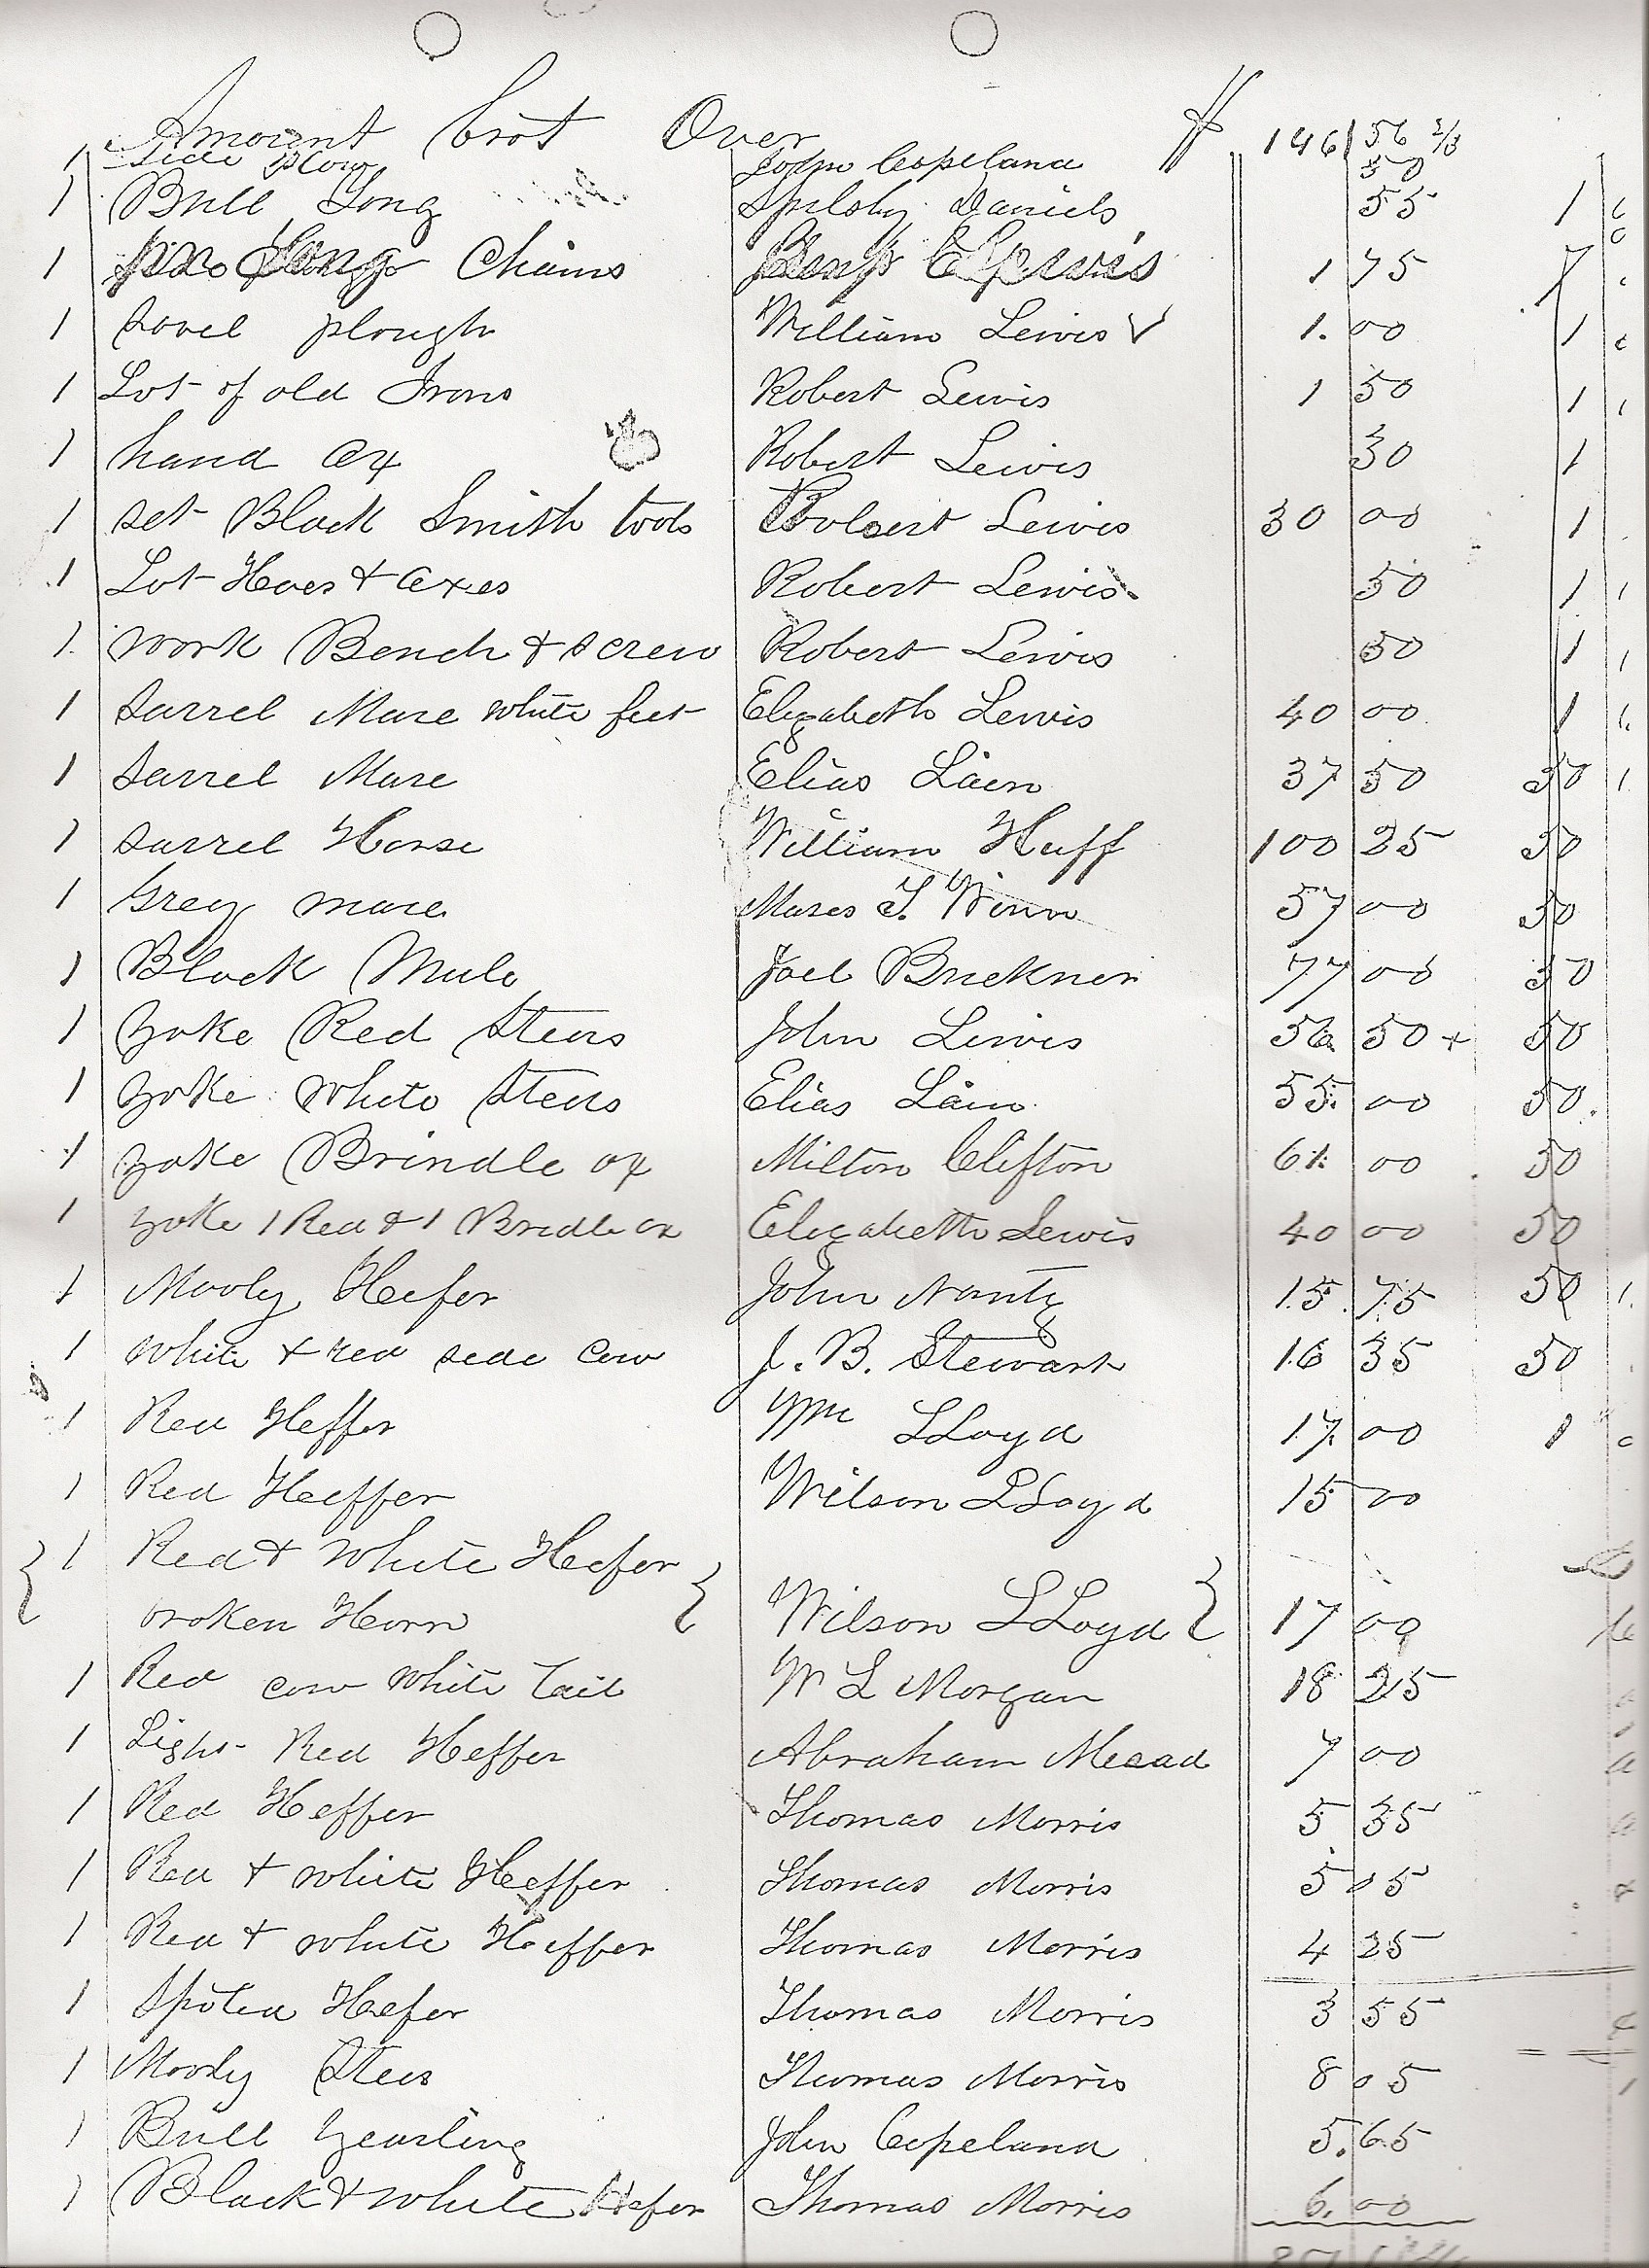 Amount brot Over $ 146 56 2/3
1 side plow John Copeland 50
1 Bull Tong Spilsby Daniels 55 1
1 Chains Lewis 1 75
1 sovel plough William Lewis √ 1. 00 1
1 Lot of old Irons Robert Lewis 1 50 1
1 hand ax Robert Lewis 30 1
1 set Black Smith tools Robert Lewis 30 00 1
1 Lot Hoes & axes Robert Lewis 50 1
1 work Bench & screw Robert Lewis 50 1
1 Sarrel Mare white feet Elizabeth Lewis 40 00 1
1 Sarrel Mare Elias Lain 37 50 50
1 Sarrel Horse William Huff 100 25 50
1 Grey mare T. Winn 57 00 50
1 Black Mule Joel Buckner 77 00 50
1 yoke Red Steers John Lewis 56 50 + 50
1 yoke white Steers Elias Lain 55 00 50
1 yoke Brindle ox Milton Clifton 61 00 50
1 yoke 1 Red & 1 Bridle ox Elizabeth Lewis 40 00 50
1 Mooly Heifer John Nantz 15 75 50
1 white & red side cow J. B. Stewart 16 35 50
1 Red Heffer Wm LLoyd 17 00 1
1 Red Heiffer Wilson LLoyd 15 00
1 Red & white Heifer
broken Horn Wilson LLoyd 17 00
1 Red cow white tail W L Morgan 18 25
1 Light Red Heffer Abraham Mead 7 00
1 Red Heffer Thomas Morris 5 35
1 Red & white Heffer Thomas Morris 5 05
1 Red & white Heiffer Thomas Morris 4 25
1 Spoted Heifer Thomas Morris 3 55
1 Mooly Steer Thomas Morris 8 05
1 Bull yearling John Copeland 5. 65
1 Black & white Hefer Thomas Morris 6. 00